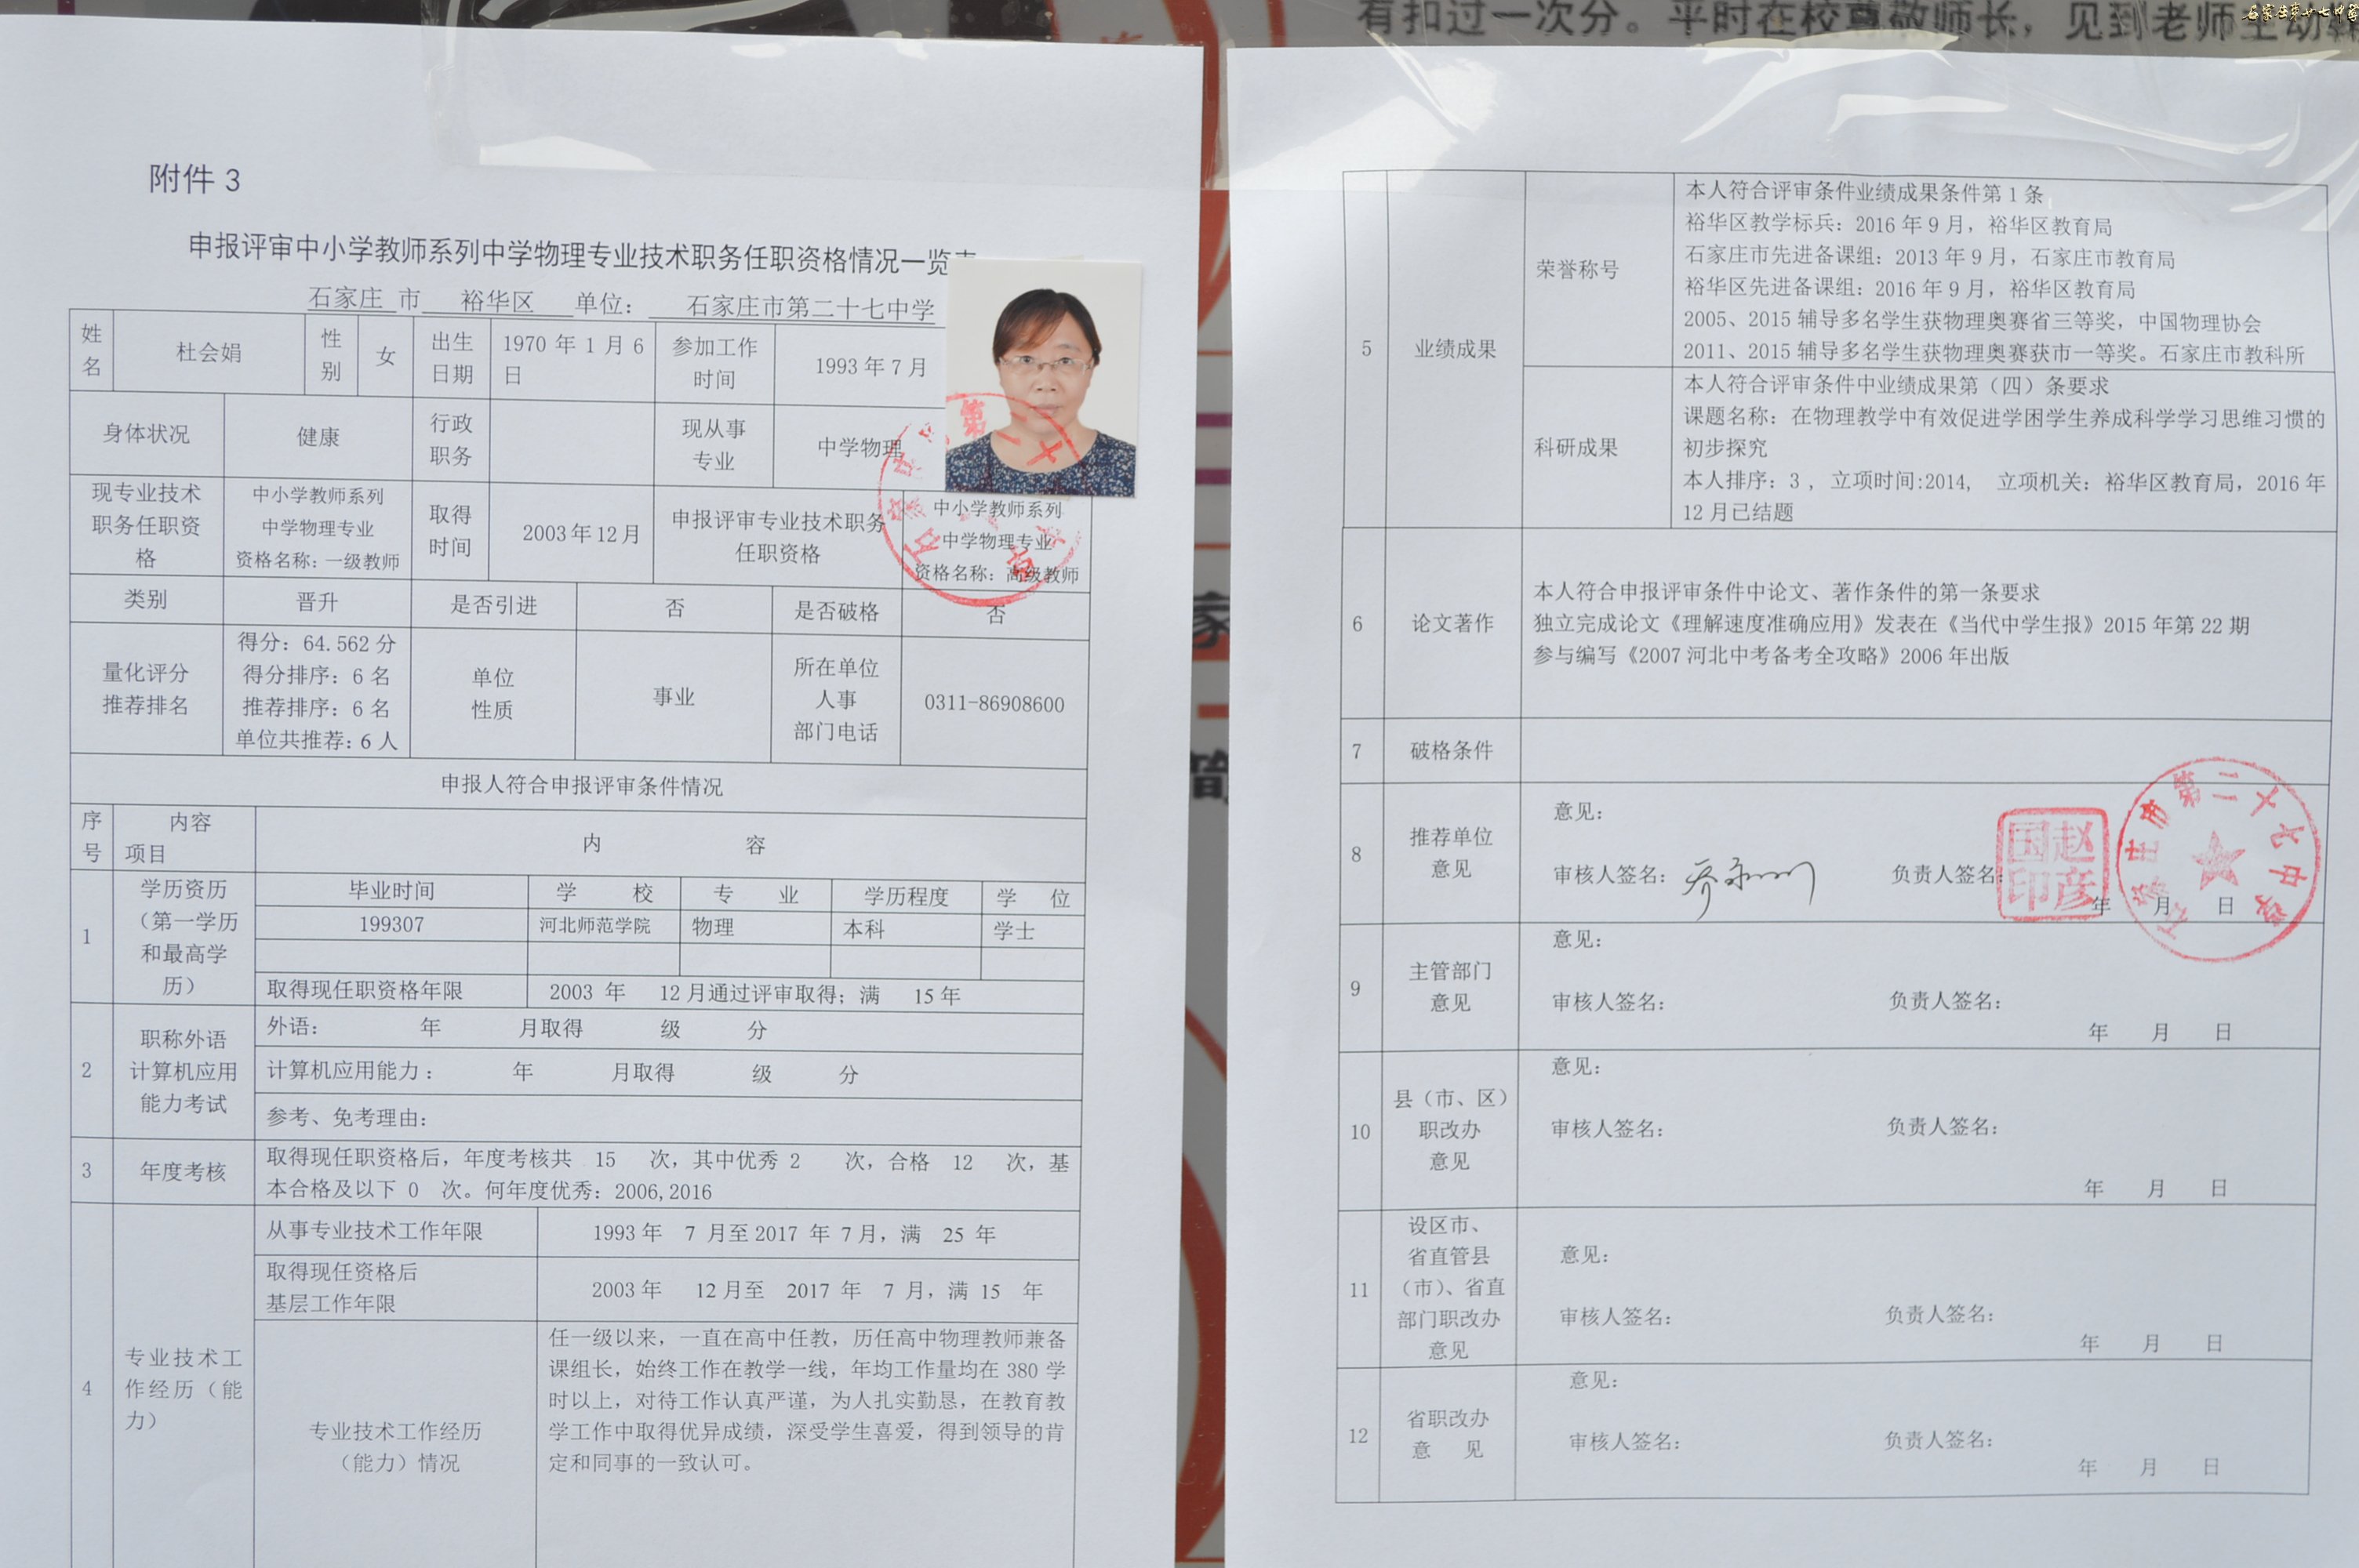 有扣过一次分。平时在校尊敬师长，见到老师主动鞠
石家庄第廿七中学
附件 3
申报评审中小学教师系列中学物理专业技术职务任职资格情况一览表
石家庄 市 裕华区 单位： 石家庄市第二十七中学
姓名 杜会娟 性别 女 出生日期 1970 年 1 月 6 日 参加工作时间 1993 年 7 月
身体状况 健康 行政职务 现从事专业 中学物理
现专业技术职务任职资格 中小学教师系列 中学物理专业 资格名称：一级教师 取得时间 2003 年 12 月 申报评审专业技术职务任职资格 中小学教师系列 中学物理专业 资格名称：高级教师
类别 晋升 是否引进 否 是否破格 否
量化评分推荐排名 得分：64.562 分 得分排序：6 名 推荐排序：6 名 单位共推荐：6 人 单位性质 事业 所在单位人事部门电话 0311-86908600
申报人符合申报评审条件情况
序号 内容 项目 内 容
1 学历资历（第一学历和最高学历） 毕业时间 学 校 专 业 学历程度 学 位
199307 河北师范学院 物理 本科 学士
取得现任职资格年限 2003 年 12 月通过评审取得；满 15 年
2 职称外语计算机应用能力考试 外语： 年 月取得 级 分
计算机应用能力： 年 月取得 级 分
参考、免考理由：
3 年度考核 取得现任职资格后，年度考核共 15 次，其中优秀 2 次，合格 12 次，基
本合格及以下 0 次。何年度优秀：2006,2016
4 专业技术工作经历（能力） 从事专业技术工作年限 1993 年 7 月至 2017 年 7 月，满 25 年
取得现任资格后基层工作年限 2003 年 12 月至 2017 年 7 月，满 15 年
专业技术工作经历（能力）情况
任一级以来，一直在高中任教，历任高中物理教师兼备
课组长，始终工作在教学一线，年均工作量均在 380 学
时以上，对待工作认真严谨，为人扎实勤恳，在教育教
学工作中取得优异成绩，深受学生喜爱，得到领导的肯
定和同事的一致认可。
5 业绩成果 荣誉称号
本人符合评审条件业绩成果条件第 1 条
裕华区教学标兵：2016 年 9 月，裕华区教育局
石家庄市先进备课组：2013 年 9 月，石家庄市教育局
裕华区先进备课组：2016 年 9 月，裕华区教育局
2005、2015 辅导多名学生获物理奥赛省三等奖，中国物理协会
2011、2015 辅导多名学生获物理奥赛获市一等奖。石家庄市教科所
科研成果
本人符合评审条件中业绩成果第（四）条要求
课题名称：在物理教学中有效促进学困学生养成科学学习思维习惯的
初步探究
本人排序：3 ，立项时间:2014， 立项机关：裕华区教育局，2016 年
12 月已结题
6 论文著作
本人符合申报评审条件中论文、著作条件的第一条要求
独立完成论文《理解速度准确应用》发表在《当代中学生报》2015 年第 22 期
参与编写《2007 河北中考备考全攻略》2006 年出版
7 破格条件
8 推荐单位意见 意见：
审核人签名： 负责人签名：
赵彦国印
年 月 日
石家庄市第二十七中学
9 主管部门意见 意见：
审核人签名： 负责人签名：
年 月 日
10 县（市、区）职改办意见 意见：
审核人签名： 负责人签名：
年 月 日
11 设区市、省直管县（市）、省直部门职改办意见 意见：
审核人签名： 负责人签名：
年 月 日
12 省职改办意 见 意见：
审核人签名： 负责人签名：
年 月 日